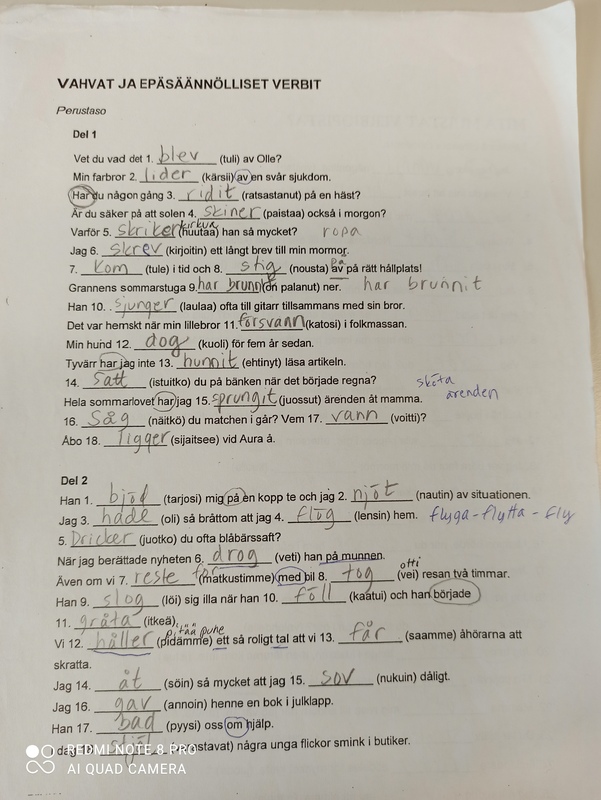 VAHVAT JA EPÄSÄÄNNÖLLISET VERBIT
Perustaso
Del 1
Vet du vad det 1. blev (tuli) av Olle?
Min farbror 2. lider (kärsii) av en svår sjukdom.
Har du någon gång 3. ridit (ratsastanut) på en häst?
Är du säker på att solen 4. skiner (paistaa) också i morgon?
kirkua
Varför 5. skriker (huutaa) han så mycket? ropa
Jag 6. skrev (kirjoitin) ett långt brev till min mormor.
på
7. kom (tule) i tid och 8. stig (nousta) av på rätt hållplats!
Grannens sommarstuga 9. har brunnit (on palanut) ner. har brunnit
Han 10. sjunger (laulaa) ofta till gitarr tillsammans med sin bror.
Det var hemskt när min lillebror 11. försvann (katosi) i folkmassan.
Min hund 12. dog (kuoli) för fem år sedan.
Tyvärr har jag inte 13. hunnit (ehtinyt) läsa artikeln.
14. Satt (istuitko) du på bänken när det började regna? sköta
Hela sommarlovet har jag 15. sprungit (juossut) ärenden åt mamma. ärenden
16. Såg (näitkö) du matchen i går? Vem 17. vann (voitti)?
Åbo 18. ligger (sijaitsee) vid Aura å.
Del 2
Han 1. bjöd (tarjosi) mig på en kopp te och jag 2. njöt (nautin) av situationen.
Jag 3. hade (oli) så bråttom att jag 4. flög (lensin) hem. flyga - flytta - fly
5. Dricker (juotko) du ofta blåbärssaft?
När jag berättade nyheten 6. drog (veti) han på munnen.
otti
Även om vi 7. reste (matkustimme) med bil 8. tog (vei) resan två timmar.
Han 9. slog (löi) sig illa när han 10. föll (kaatui) och han började
11. gråta (itkeä).
pitää puhe
Vi 12. håller (pidämme) ett så roligt tal att vi 13. får (saamme) åhörarna att
skratta.
Jag 14. åt (söin) så mycket att jag 15. sov (nukuin) dåligt.
Jag 16. gav (annoin) henne en bok i julklapp.
Han 17. bad (pyysi) oss om hjälp.
stjäl stavat) några unga flickor smink i butiker.
REDMI NOTE 8 PRO
AI QUAD CAMERA